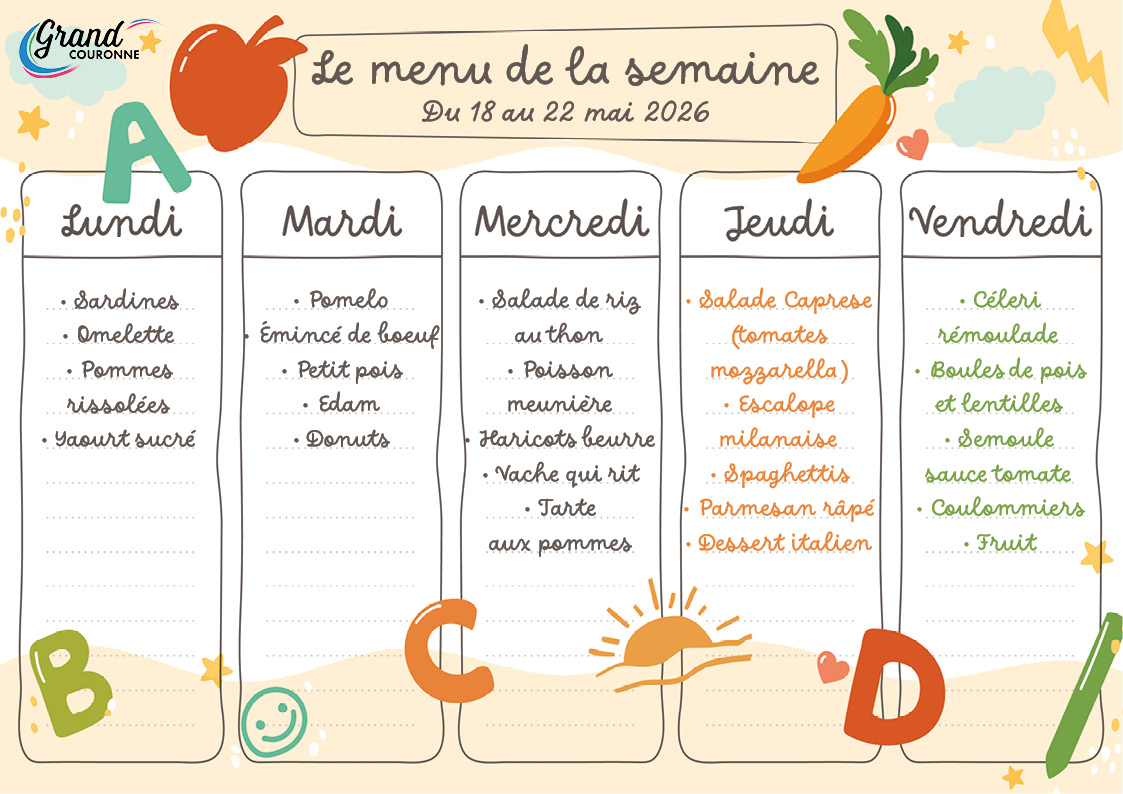 Grand
COURONNE
Le menu de la semaine
Du 18 au 22 mai 2026
A
Lundi
• Sardines
• Omelette
• Pommes
rissolées
• Yaourt sucré
Mardi
• Pomelo
• Émincé de boeuf
• Petit pois
• Edam
• Donuts
Mercredi
• Salade de riz
au thon
• Poisson
meunière
• Haricots beurre
• Vache qui rit
• Tarte
aux pommes
Jeudi
• Salade Caprese
(tomates
mozzarella)
• Escalope
milanaise
• Spaghettis
• Parmesan râpé
• Dessert italien
Vendredi
• Céleri
rémoulade
• Boules de pois
et lentilles
• Semoule
sauce tomate
• Coulommiers
• Fruit
B
C
D